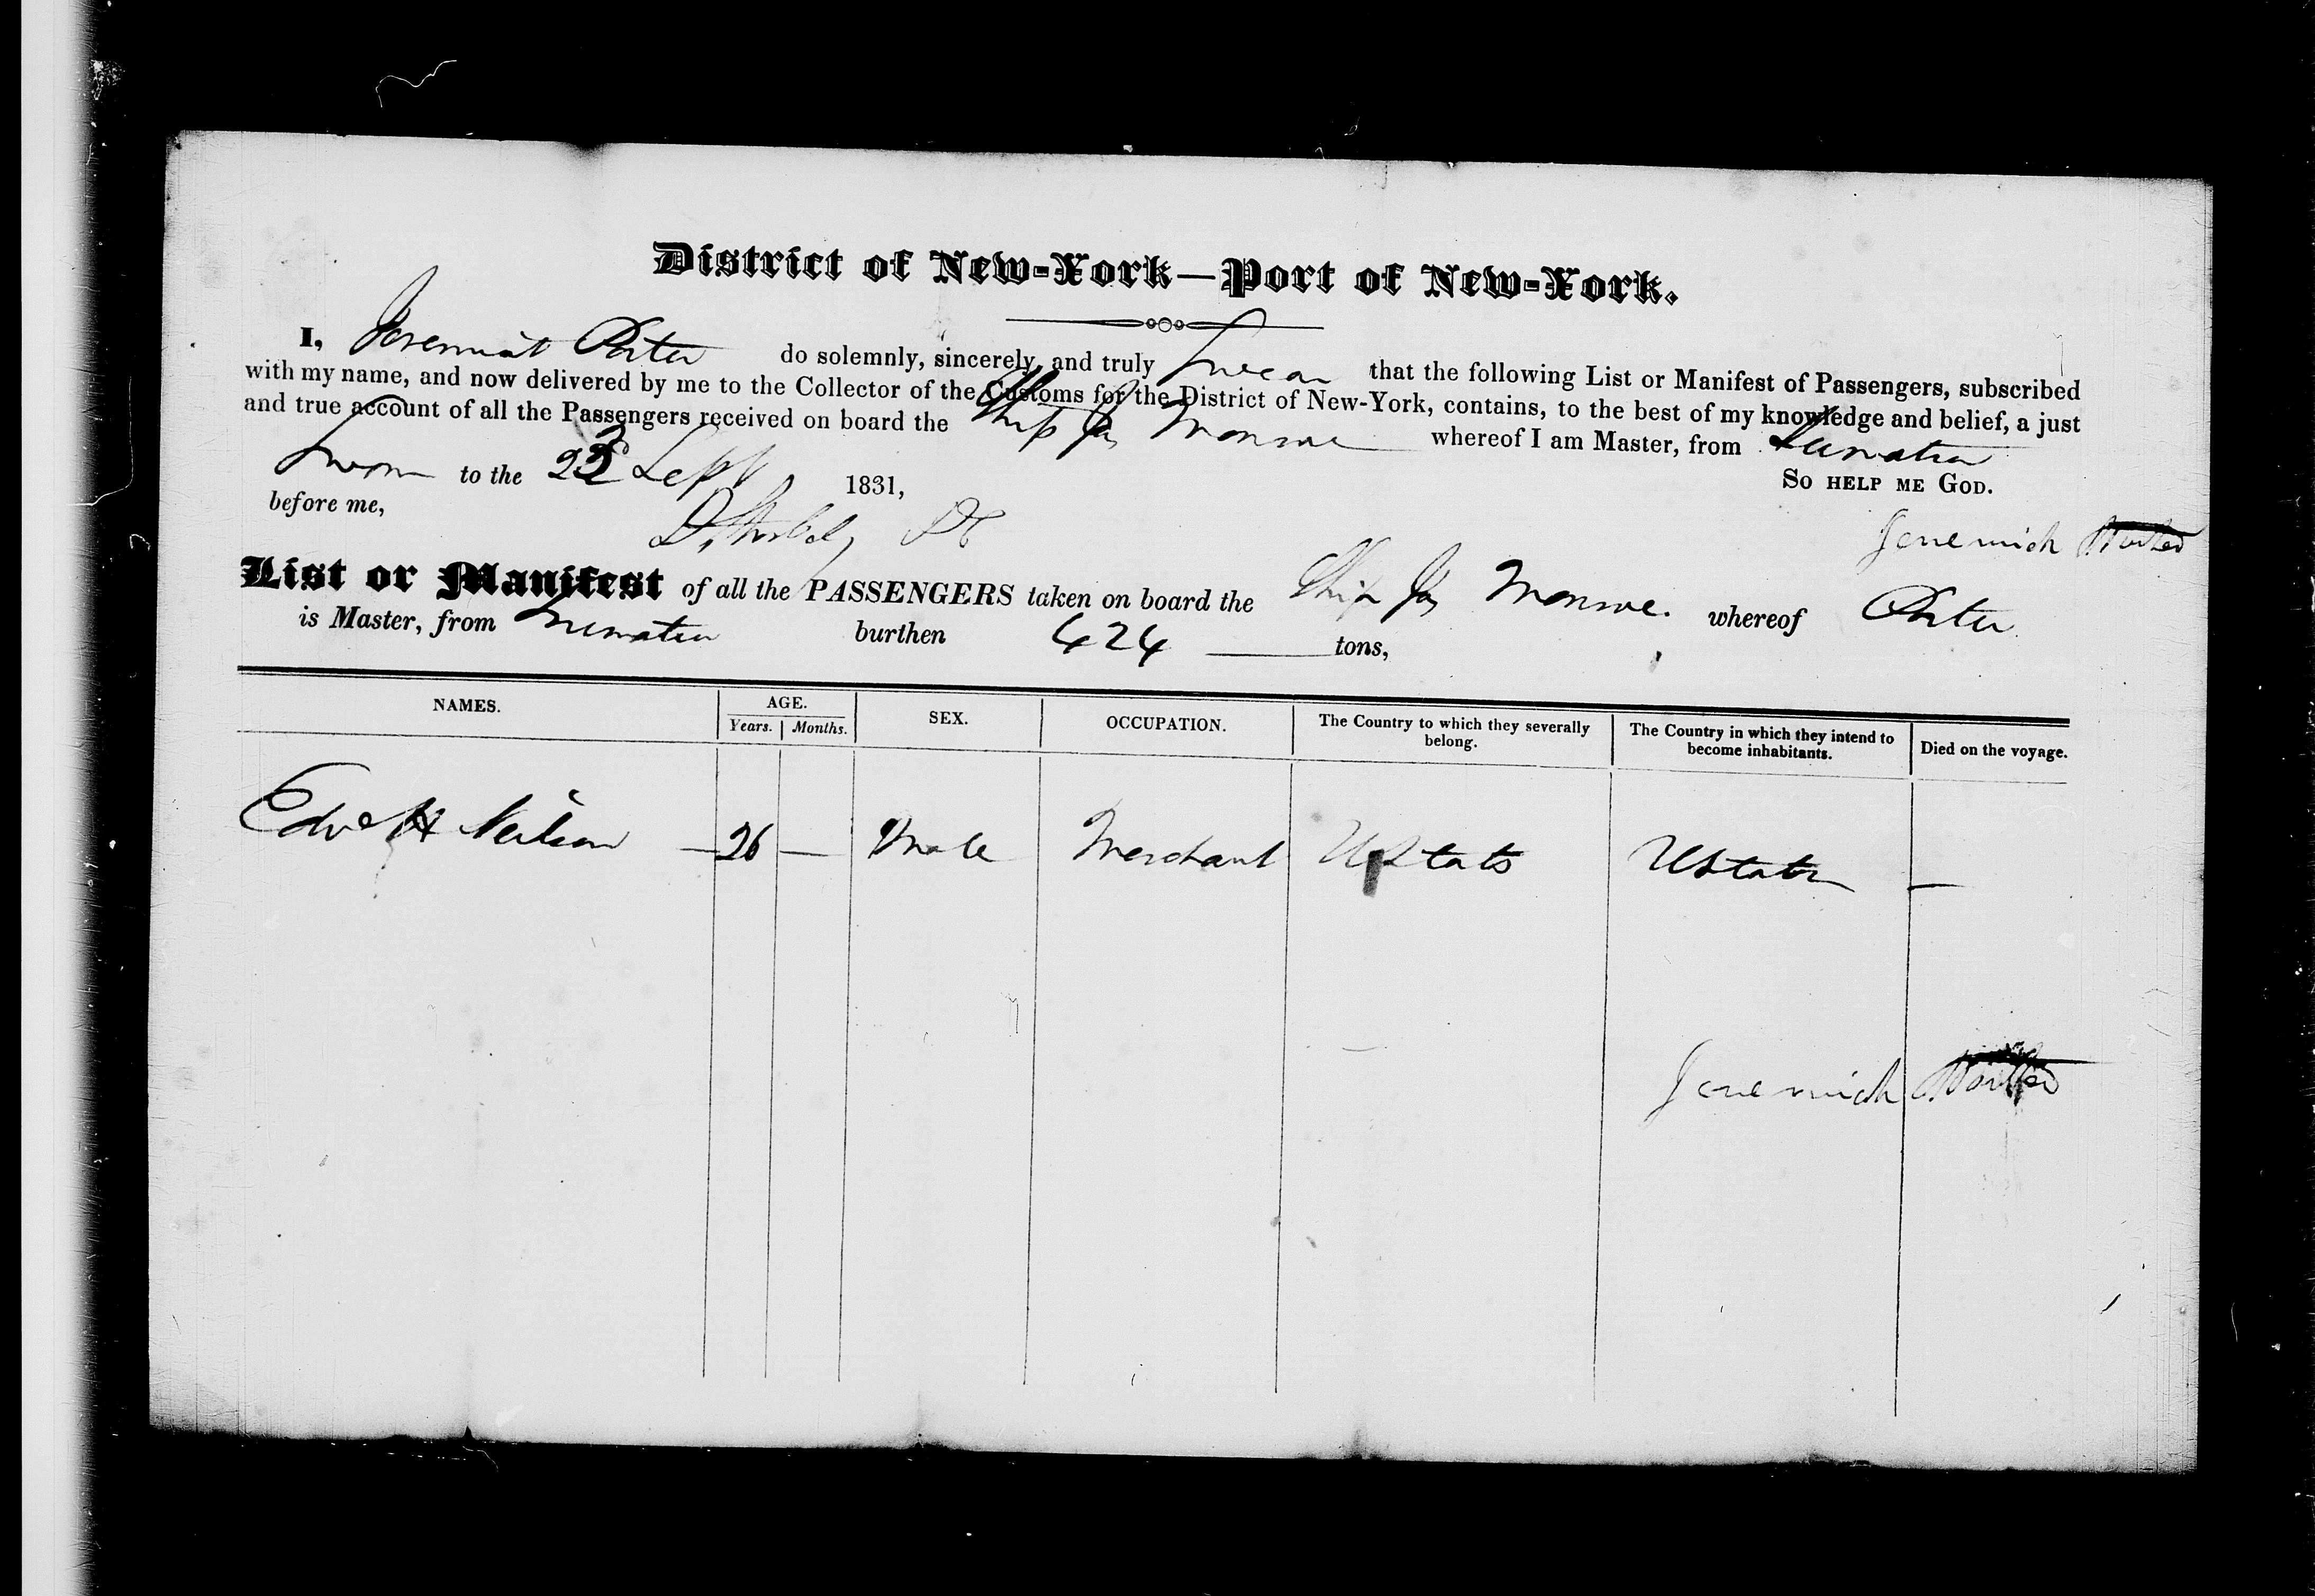 District of New-York—Port of New-York.
I, Jeremiah Porter do solemnly, sincerely, and truly Swear that the following List or Manifest of Passengers, subscribed
with my name, and now delivered by me to the Collector of the Customs for the District of New-York, contains, to the best of my knowledge and belief, a just
and true account of all the Passengers received on board the Ship Jas Monroe whereof I am Master, from Sumatra
Sworn to the 23 Sept 1831, So HELP ME GOD.
before me,
Jeremiah Porter
List or Manifest of all the PASSENGERS taken on board the Ship Jas Monroe. whereof Porter
is Master, from Sumatra burthen 424 tons,
NAMES. AGE. SEX. OCCUPATION. The Country to which they severally belong. The Country in which they intend to become inhabitants. Died on the voyage.
Years. Months.
Edwd H Neilson — 26 — Male Merchant UStats UStates —
Jeremiah Porter